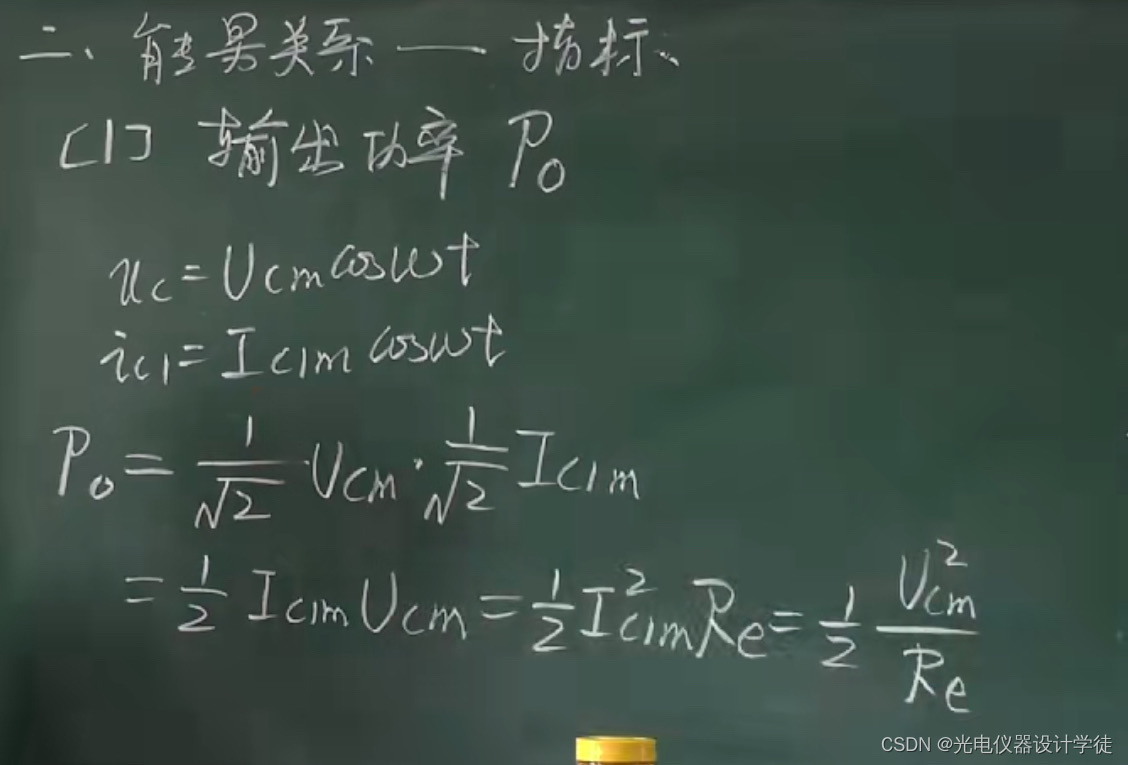 二、能量关系——指标
[1] 输出功率 Po
uc=Ucmcosωt
ic1=Ic1mcosωt
Po=1/√2·Ucm·1/√2 Ic1m
=1/2 Ic1mUcm=1/2 I²c1mRe=1/2 U²cm/Re
CSDN @光电仪器设计学徒